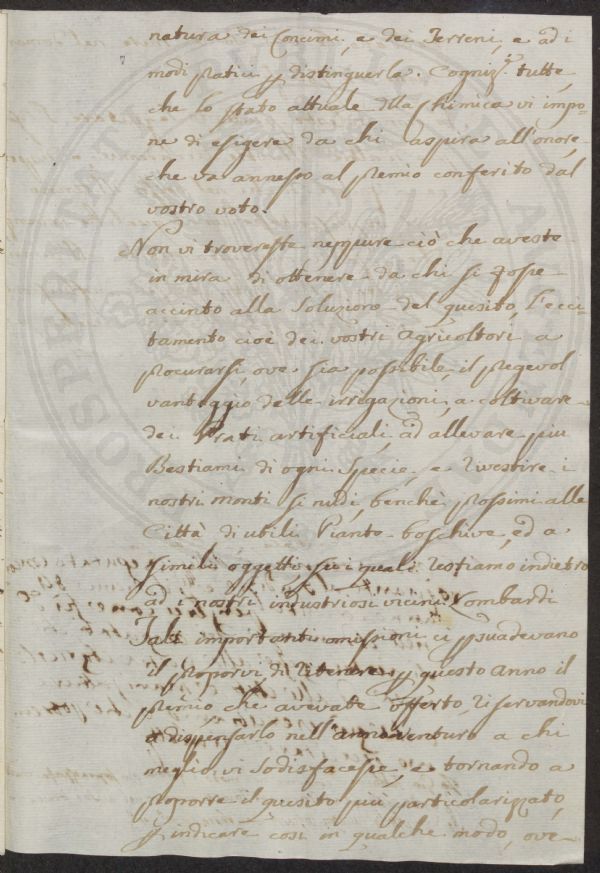 natura dei Concimi, e dei Terreni, e ad i
modi pratici p distinguerla. Cogniz.i tutte,
che lo stato attuale della Chimica vi impo-
ne di esigere da chi aspira all'onore,
che va annesso al premio conferito dal
vostro voto.
Non vi trovereste neppure ciò che aveste
in mira di ottenere da chi si fosse
accinto alla Soluzione del quesito, l'ecci-
tamento cioè dei vostri Agricoltori a
procurarsi, ove sia possibile, il pregevol
vantaggio delle irrigazioni, a coltivare
dei Prati artificiali, ad allevare più
Bestiami di ogni Specie, e rivestire i
nostri monti si nudi, benchè prossimi alle
Città di utili Piante boschive, ed a
simili oggetti, su i quali restiamo indietro
ad i nostri industriosi vicini Lombardi
Tali importanti omissioni ci psuadevano
il proporvi di ritenere p questo anno il
premio che avevate offerto, riservandovi
a dispensarlo nell'anno venturo a chi
meglio vi sodisfacesse, e tornando a
proporre il quesito più particolarizzato,
p indicare così in qualche modo, ove